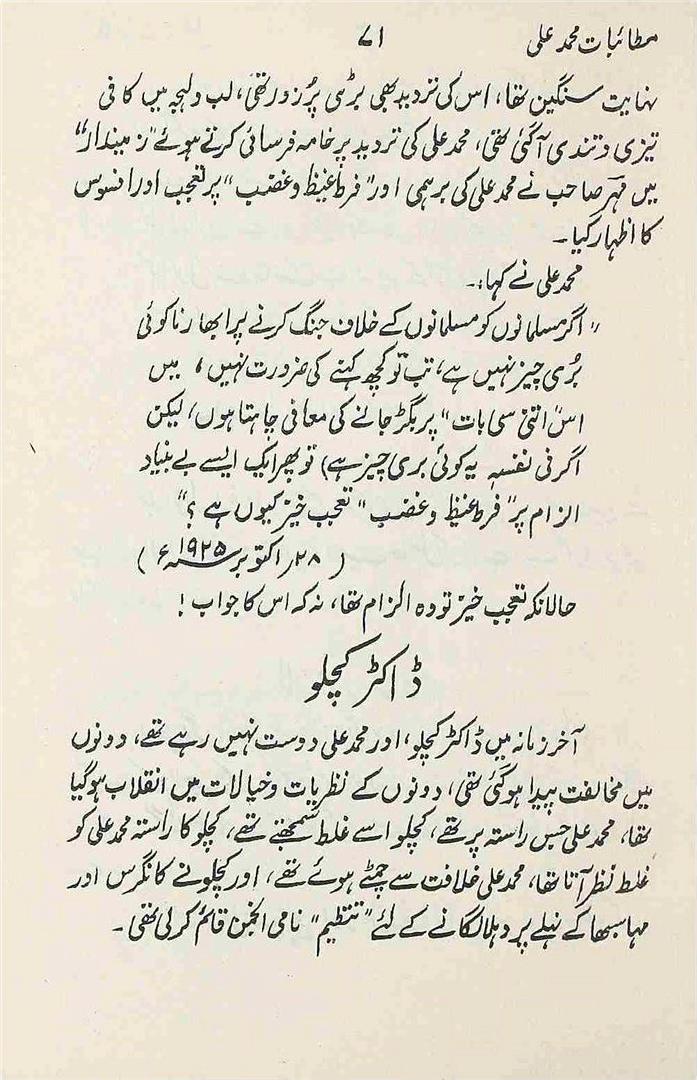 مطائبات محمد علی ۷۱
نہایت سنگین تھا، اس کی تردید بھی بڑی پُرزور تھی، لب ولہجہ میں کافی
تیزی و تندی آگئی تھی، محمد علی کی تردید پر خامہ فرسائی کرتے ہوئے "زمیندار"
میں مہر صاحب نے محمد علی کی برہمی اور "فرط غیظ و غضب" پر تعجب اور افسوس
کا اظہار کیا۔
محمد علی نے کہا:۔
"اگر مسلمانوں کو مسلمانوں کے خلاف جنگ کرنے پر ابھارنا کوئی
بُری چیز نہیں ہے، تب تو کچھ کہنے کی ضرورت نہیں، میں
اس "اتنی سی بات" پر بگڑ جانے کی معافی چاہتا ہوں، لیکن
اگر فی نفسہ یہ کوئی بری چیز ہے) تو پھر ایک ایسے بے بنیاد
الزام پر "فرط غیظ و غضب" تعجب خیز کیوں ہے؟"
(۲۸ اکتوبر ۱۹۲۵ء)
حالانکہ تعجب خیز تو وہ الزام تھا، نہ کہ اس کا جواب!
ڈاکٹر کچلو
آخر زمانہ میں ڈاکٹر کچلو، اور محمد علی دوست نہیں رہے تھے، دونوں
میں مخالفت پیدا ہوگئی تھی، دونوں کے نظریات و خیالات میں انقلاب ہوگیا
تھا، محمد علی جس راستہ پر تھے، کچلو اسے غلط سمجھتے تھے، کچلو کا راستہ محمد علی کو
غلط نظر آتا تھا، محمد علی خلافت سے چمٹے ہوئے تھے، اور کچلو نے کانگرس اور
مہاسبھا کے نہلے پر دہلا لگانے کے لئے "تنظیم" نامی انجمن قائم کرلی تھی۔